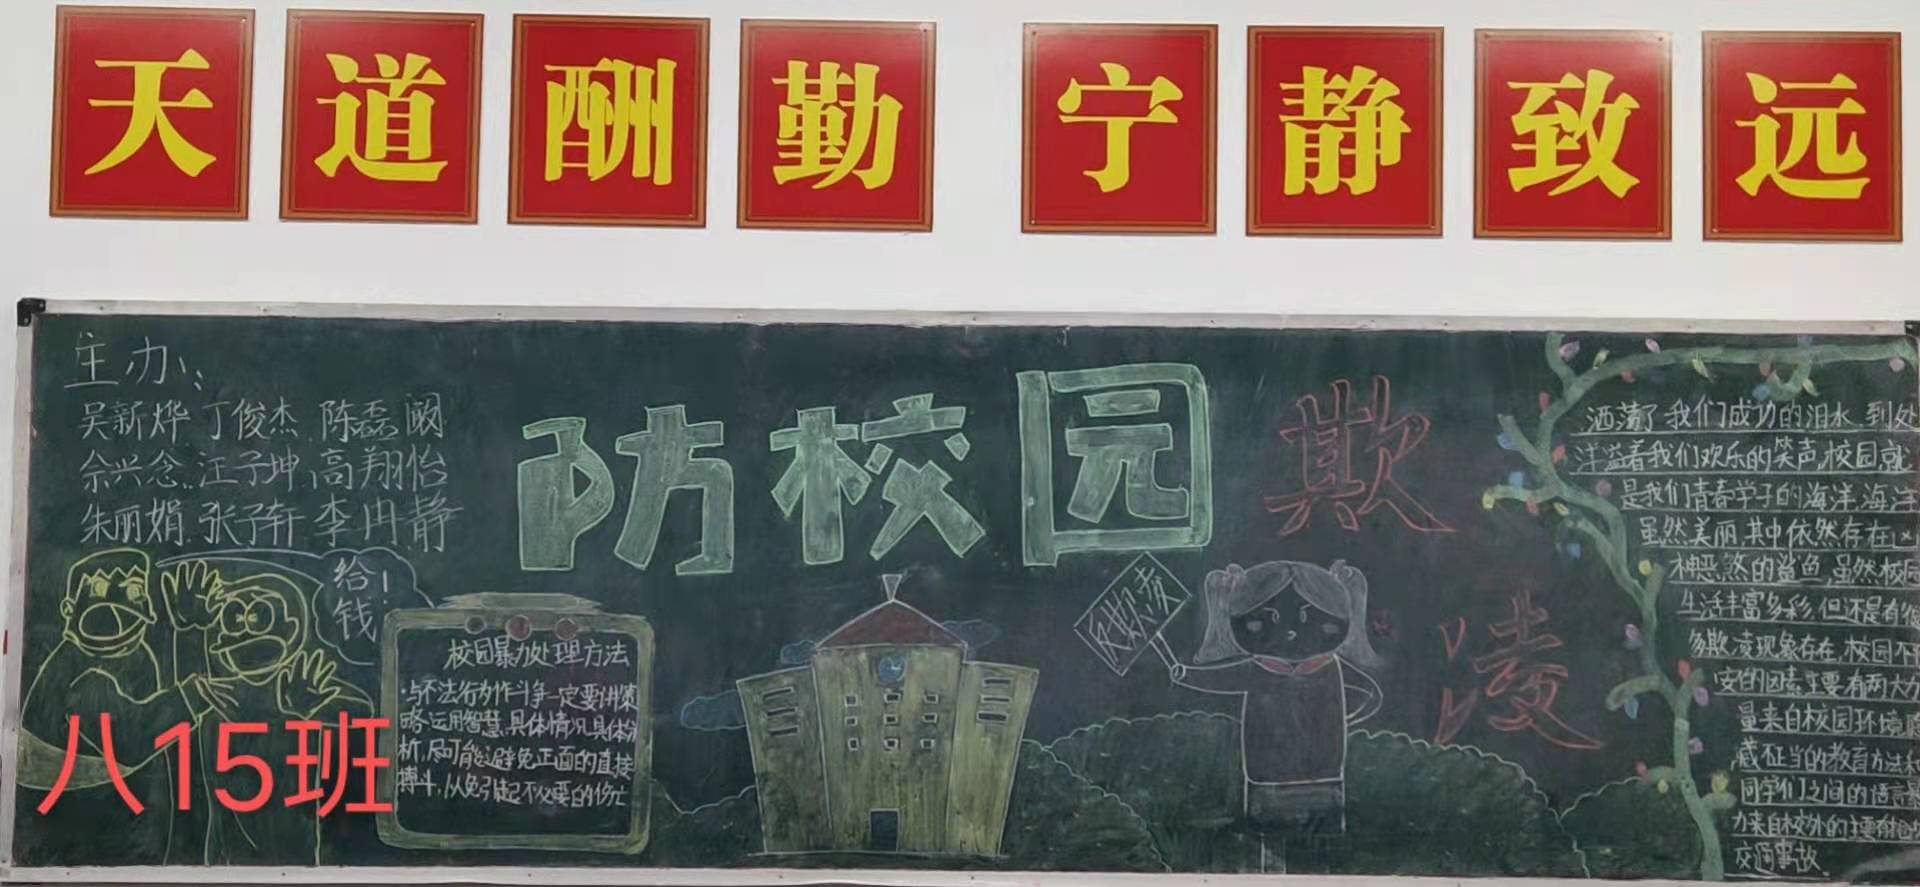 天道酬勤 宁静致远
主办:
吴新烨 丁俊杰 陈磊阚
佘兴念 汪子坤 高翔怡
朱丽娟 张子轩 李冉静
给钱!
防校园欺凌
反欺凌
校园暴力处理方法
·与不法行为作斗争一定要讲策
略,运用智慧,具体情况具体分
析,尽可能避免正面的直接
搏斗,从免引起不必要的伤亡
洒荡了我们成功的泪水,到处
洋溢着我们欢乐的笑声,校园就
是我们青春学子的海洋,海洋
虽然美丽,其中依然存在凶
神恶煞的鲨鱼,虽然校园
生活丰富多彩,但还是有很
多欺凌现象存在,校园不
安的因素主要有两大力
量来自校园环境
不正当的教育方法和
同学们之间的语言暴
力来自校外的主要有
交通事故
八15班